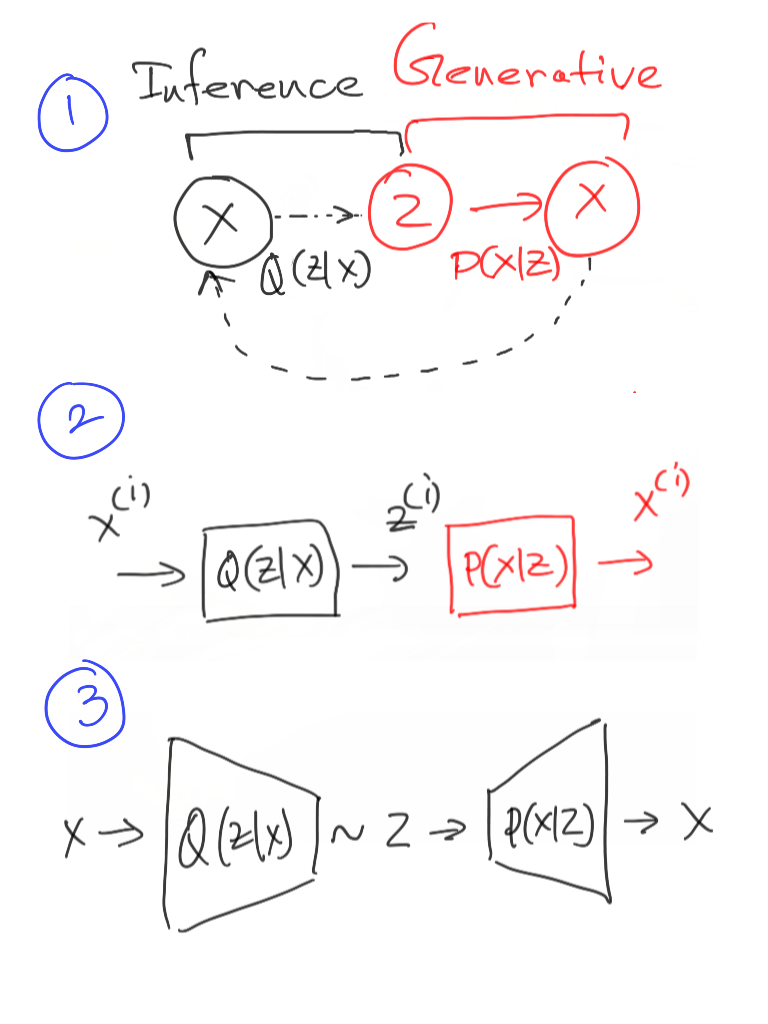 Inference Generative
1
X Z X
Q(z|x) P(X|Z)
2
x(i) z(i) x(i)
Q(z|x) P(X|Z)
3
X → Q(z|x) ~ Z → P(X|Z) → X